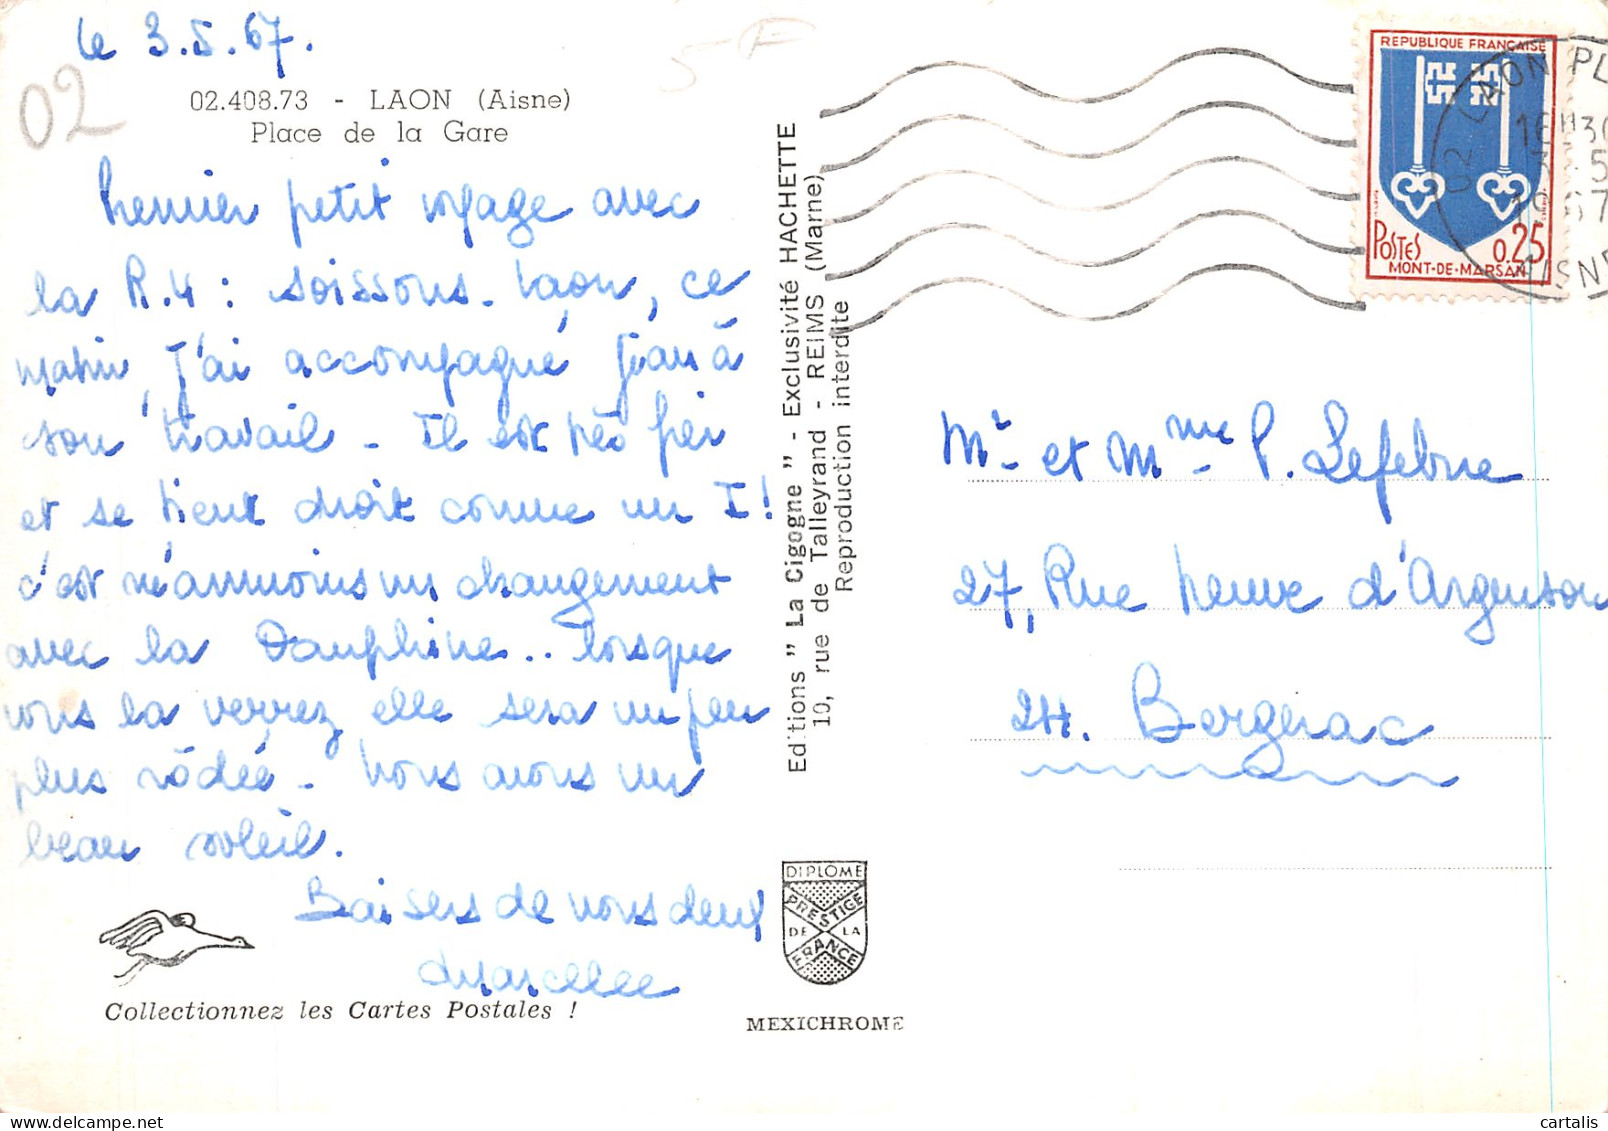 le 3.5.67.
02
5F
02.408.73 - LAON (Aisne)
Place de la Gare
Premier petit voyage avec
la R.4 : Soissons - Laon, ce
matin, j'ai accompagné Jean à
son travail - Il est très fier
et se tient droit comme un I !
c'est néanmoins un changement
avec la Dauphine .. lorsque
vous la verrez elle sera un peu
plus rôdée - Nous avons un
beau soleil.
Baisers de nous deux
Marcelle
Collectionnez les Cartes Postales !
Editions " La Cigogne " - Exclusivité HACHETTE
10, rue de Talleyrand - REIMS (Marne)
Reproduction interdite
DIPLOME
PRESTIGE
DE LA
FRANCE
MEXICHROME
REPUBLIQUE FRANÇAISE
POSTES 0.25
MONT-DE-MARSAN
02 LAON PL
16H30
3-5
1967
AISNE
Mr et Mme P. Lefebvre
27, Rue Neuve d'Argenson
24. Bergerac
cartalis